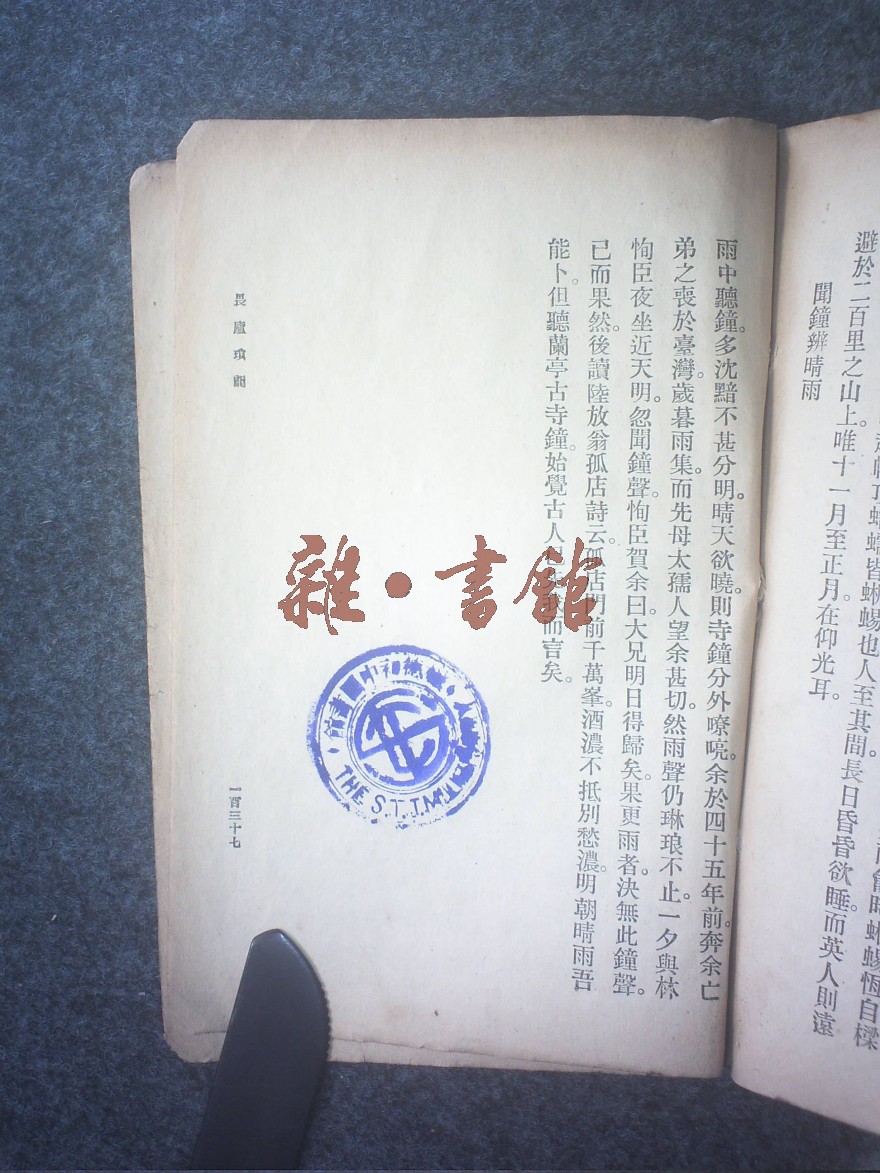 避於二百里之山上。唯十一月至正月在仰光耳。
聞鐘辨晴雨
雨中聽鐘。多沈黯不甚分明。晴天欲曉。則寺鐘分外嘹喨。余於四十五年前。奔余亡
弟之喪於臺灣。歲暮雨集。而先母太孺人望余甚切。然雨聲仍琳琅不止。一夕與林
恂臣夜坐近天明。忽聞鐘聲。恂臣賀余曰。大兄明日得歸矣。果更雨者。決無此鐘聲。
已而果然。後讀陸放翁孤店詩云。孤店門前千萬峯。酒濃不抵別愁濃。明朝晴雨吾
能卜。但聽蘭亭古寺鐘。始覺古人而言矣。
畏廬瑣
一百三十七
雜·書館
THE S.T.T.M.